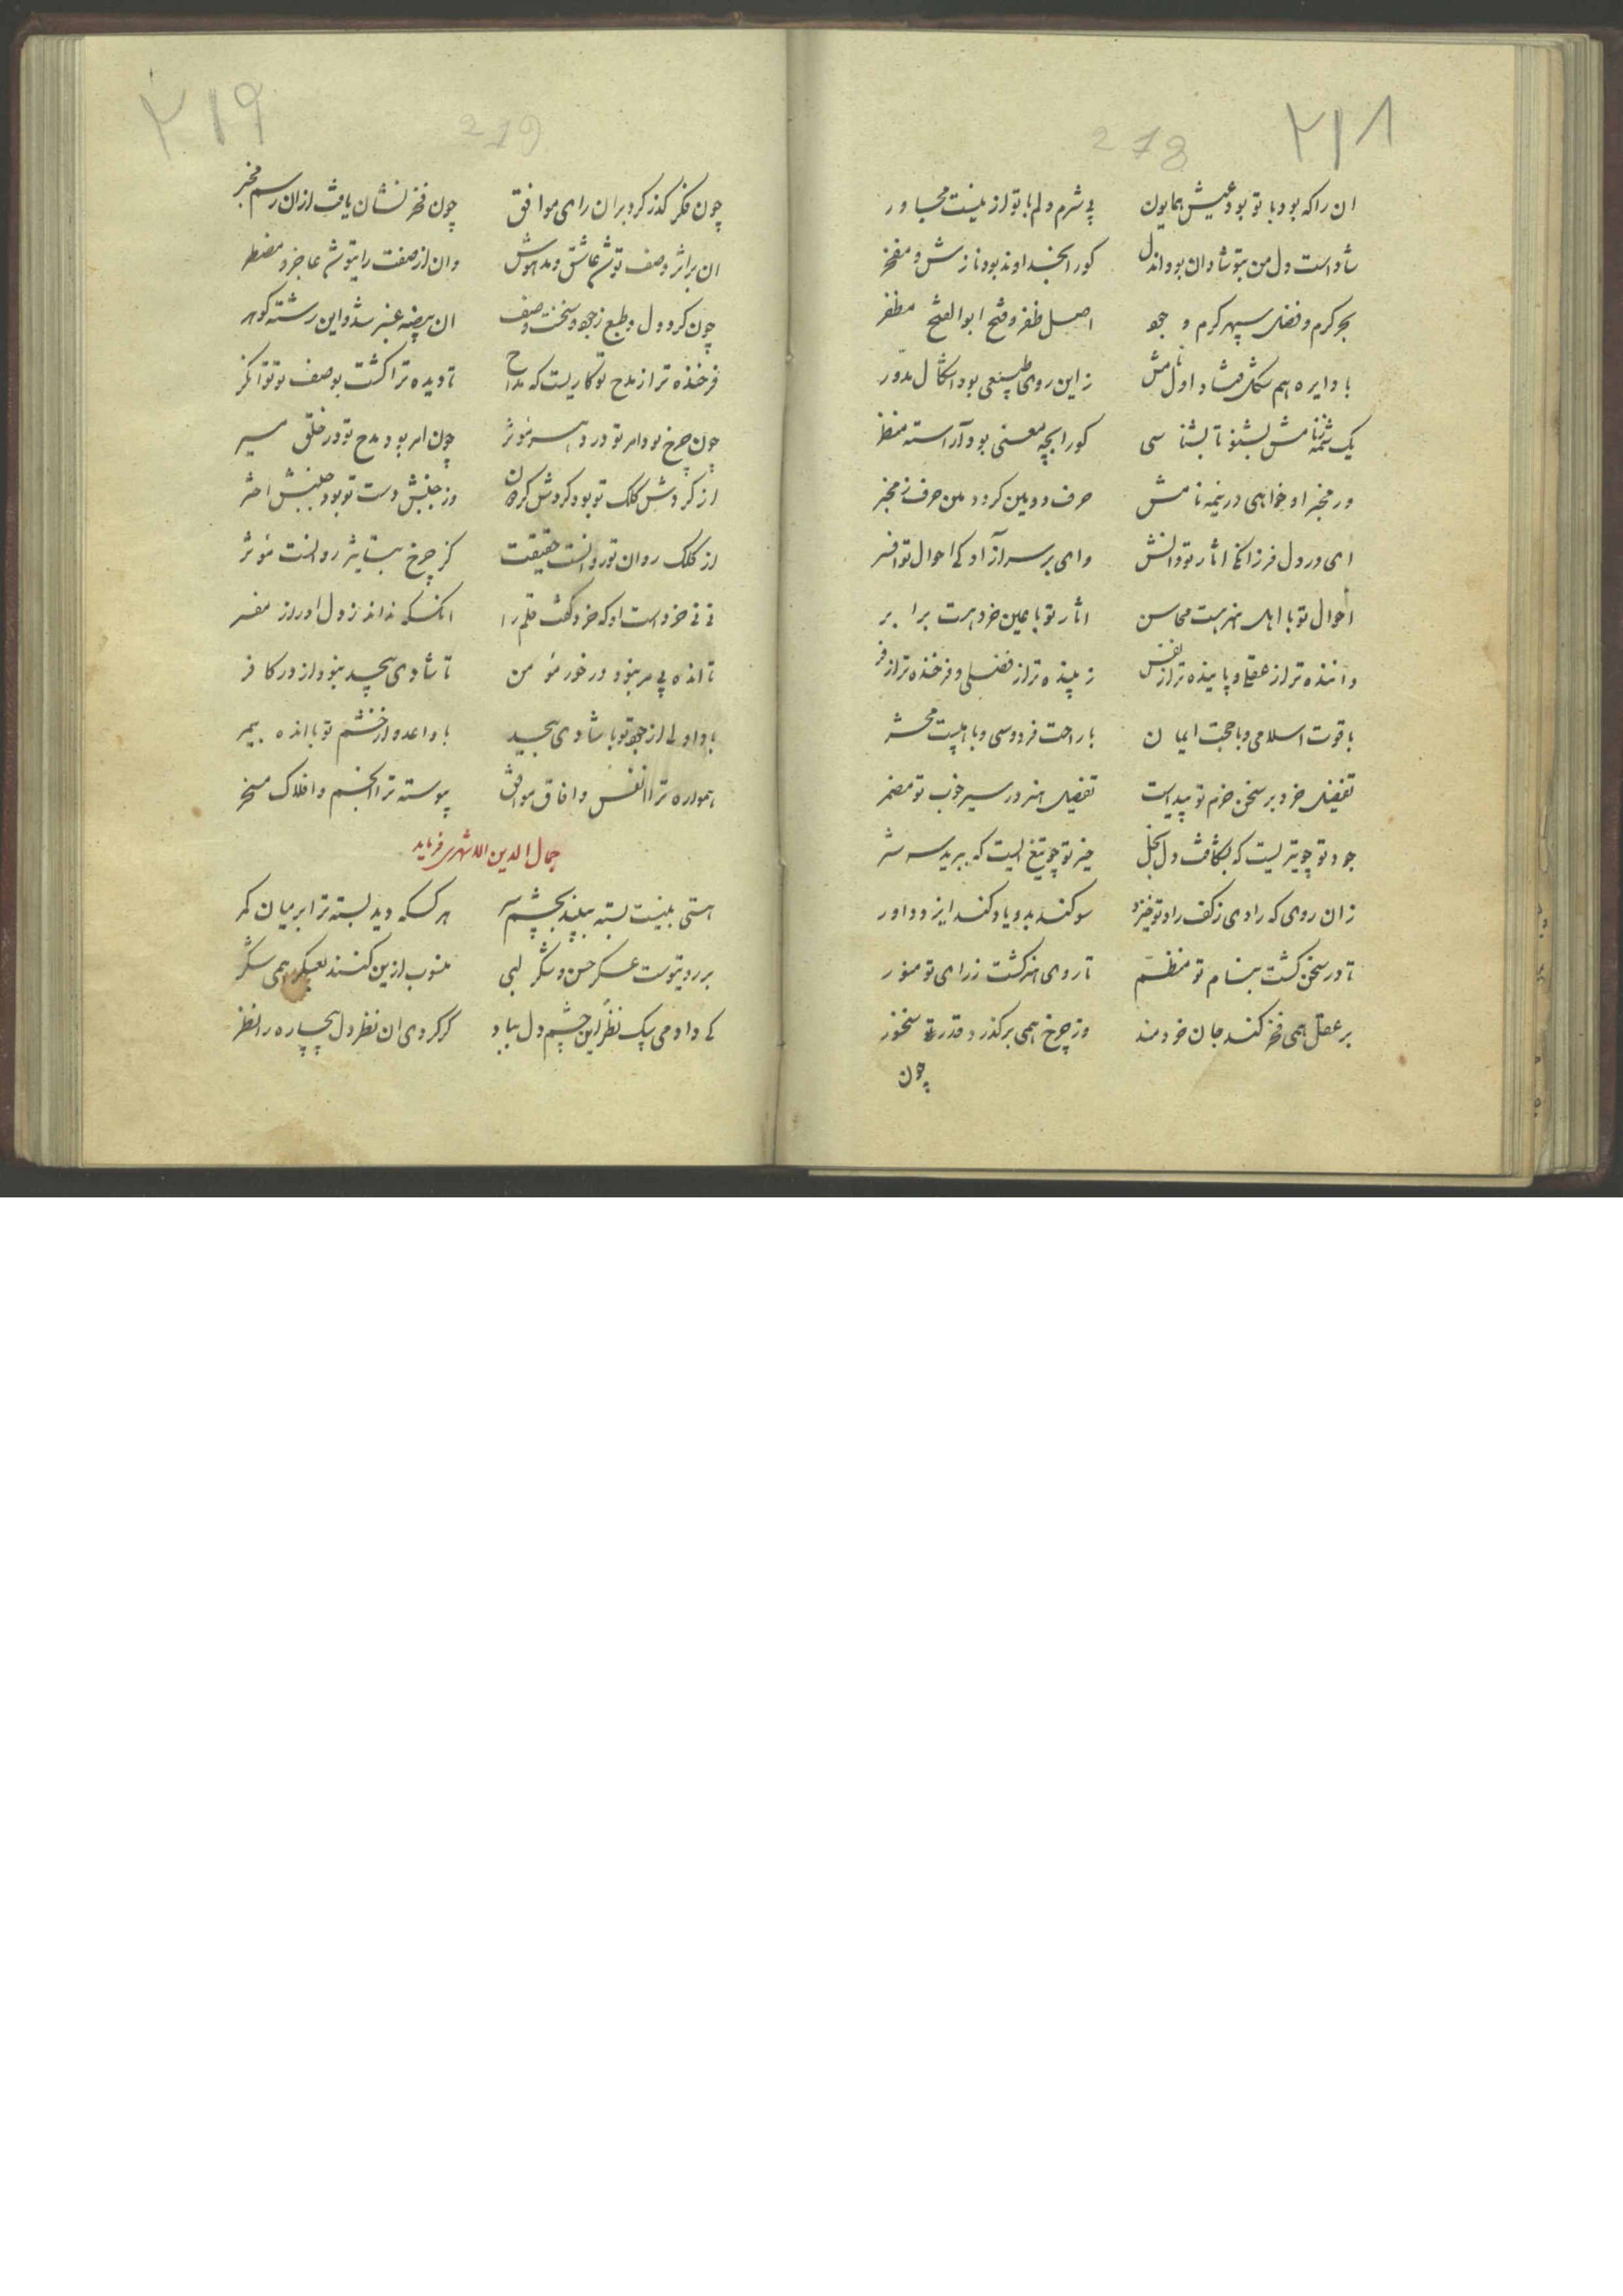 ۲۱۸
218
ان را که بود با تو بود عیش همایون بی شرم دلم با تو از نیست مجاور
شاد است دل من بتو شادان بود اندل کورا بخداوند بود نازش و مفخر
بحر کرم و فضل سپهر کرم و جود اصل ظفر و فتح ابو الفتح مظفر
با دایره هم شکل فتاد اول نامش زاین روی طبیعی بود اشکال مدور
یک نیمه نامش بشنو تا بشناسی کورا بچه معنی بود آراسته منظر
ور مخبر او خواهی در نیمه نامش حرف دومین کرد و مین حرف ز مخبر
ای در دل فرزانکی اثار تو دانش وای بر سر آزادکی احوال تو افسر
احوال تو با اهل هنر هست محاسن اثار تو با عین خرد هست برابر
داننده تر از عقلی و پاینده تر از نفس زیبنده تر از فضلی و فرخنده تر از فر
با قوت اسلامی و با حجت ایمان با راحت فردوسی و با هیبت محشر
تفضیل خرد بر سخن خرم تو پیداست تفصیل هنر در سیر خوب تو مضمر
جود تو چو تیریست که بشکافت دل بخل خیر تو چو تیغ است که ببرید سر شر
زان روی که رادی ز کف راد تو خیزد سوکند بدو یاد کند ایزد داور
تا در سخن کشت بنام تو منظم تا روی هنر کشت ز رای تو منور
بر عقل همی فخر کند جان خردمند وز چرخ همی برگذرد قدر سخنور
چون
۲۱۹
219
چون فکر گذر کرد بران رای موافق چون فخر نشان یافت ازان رسم مخبر
ان بر اثر وصف توشد عاشق و مدهوش وان از صفت رای توشد عاجز و مضطر
چون کرد دل و طبع ز جود و سخنت وصف ان بیضه عنبر شد و این رشته کوهر
فرخنده تر از مدح تو کاریست که مداح تا دیده ترا کشت بوصف تو توانکر
چون چرخ بود امر تو در دهر مؤثر چون امر بود مدح تو در خلق میسر
از کردش کلک تو بود کردش کردون وز جنبش دست تو بود جنبش اختر
از کلک روان تو روانست حقیقت کز چرخ بتاثیر روانست مؤثر
نی نی خرد است او که خرد کفت قلم را انکس که نداند ز دل او راز مفسر
تا انده بی مر نبود در خور مؤمن تا شادی بیحد نبود از در کافر
باد اولی از جود تو با شادی بیحد باد اعدو از خشم تو با انده بیمر
همواره ترا انفس و افاق موافق پیوسته ترا انجم و افلاک مسخر
جمال الدین شهری فرماید
هستی بنیست بسته ببیند بچشم سر هر کسکه دید بسته ترا بر میان کمر
بر رد بتوست عسکر حسن و شکر لبی منسوب ازین کنند بعسکر همی شکر
کی دادمی بیک نظر این چشم دل بباد گر کردی ان نظر دل بیچاره را نظر